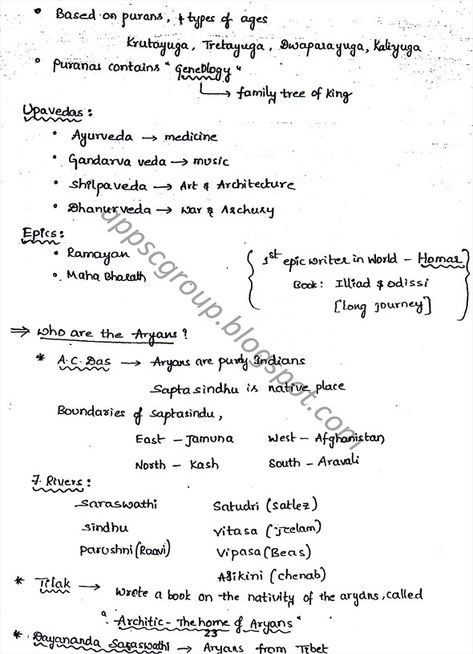 • Based on purans, 4 types of ages
Krutayuga, Tretayuga, Dwaparayuga, Kaliyuga
• Puranas contains "Geneology"
→ family tree of king
Upavedas:
• Ayurveda → medicine
• Gandarva veda → music
• Shilpaveda → Art & Architecture
• Dhanurveda → War & Archury
Epics:
• Ramayan
• Maha Bharath
1st epic writer in World - Homar
Book: Illiad & odissi
[Long journey]
⇒ Who are the Aryans?
* A.C. Das → Aryans are purly Indians
Sapta sindhu is native place
Boundaries of saptasindu,
East - Jamuna West - Afghanistan
North - Kash South - Aravali
7. Rivers:
Saraswathi Satudri (satlez)
Sindhu Vitasa (Jeelam)
Parushni (Raavi) Vipasa (Beas)
Asikini (chenab)
* Tilak → Wrote a book on the nativity of the aryans, called
"Architic - The home of Aryans"
23
* Dayananda Saraswathi → Aryans from Tibet
appscgroup.blogspot.com